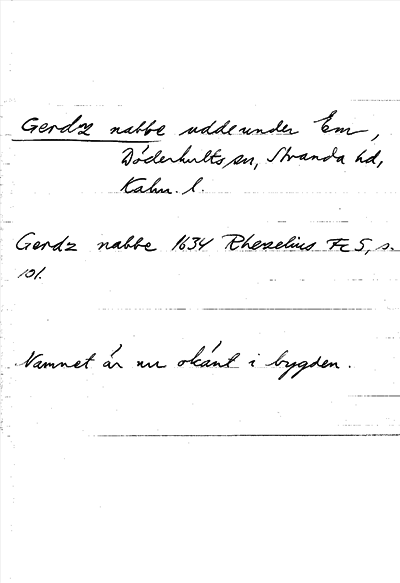 Gerdz nabbe udde under Em,
Döderhults sn, Stranda hd,
Kalm. l.
Gerdz nabbe 1634 Rhezelius Fc 5, s.
101.
Namnet är nu okänt i bygden.